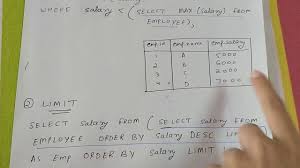 WHERE salary < (SELECT MAX (Salary) FROM
EMPLOYEE),
emp.id emp_name emp_salary
1 A 5000
2 B 6000
3 C 2000
4 D 7000
② LIMIT
SELECT Salary FROM (SELECT Salary FROM
EMPLOYEE ORDER BY Salary DESC
AS Emp ORDER BY Salary